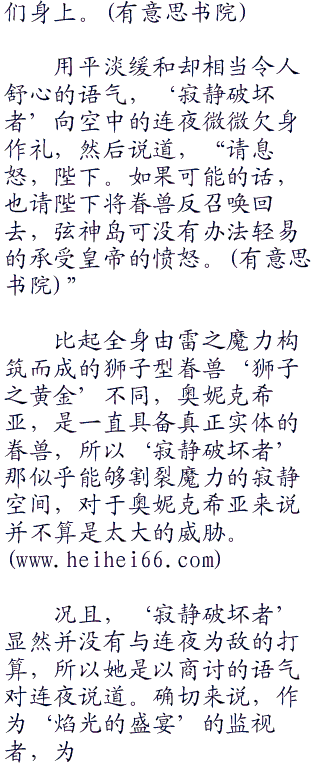 们身上。(有意思书院)
用平淡缓和却相当令人
舒心的语气，‘寂静破坏
者’向空中的连夜微微欠身
作礼，然后说道，“请息
怒，陛下。如果可能的话，
也请陛下将眷兽反召唤回
去，弦神岛可没有办法轻易
的承受皇帝的愤怒。(有意思
书院)”
比起全身由雷之魔力构
筑而成的狮子型眷兽‘狮子
之黄金’不同，奥妮克希
亚，是一直具备真正实体的
眷兽，所以‘寂静破坏者’
那似乎能够割裂魔力的寂静
空间，对于奥妮克希亚来说
并不算是太大的威胁。
(www.heihei66.com)
况且，‘寂静破坏者’
显然并没有与连夜为敌的打
算，所以她是以商讨的语气
对连夜说道。确切来说，作
为‘焰光的盛宴’的监视
者，为